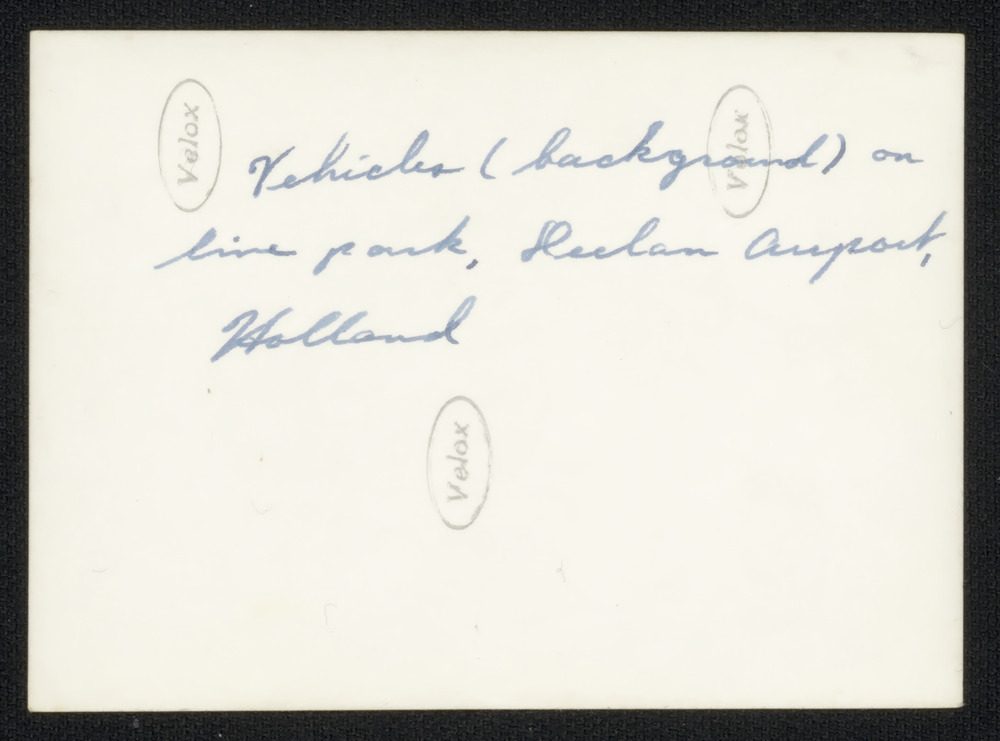 Velox
Velox
Vehicles (background) on
line park, Airport,
Holland
Velox